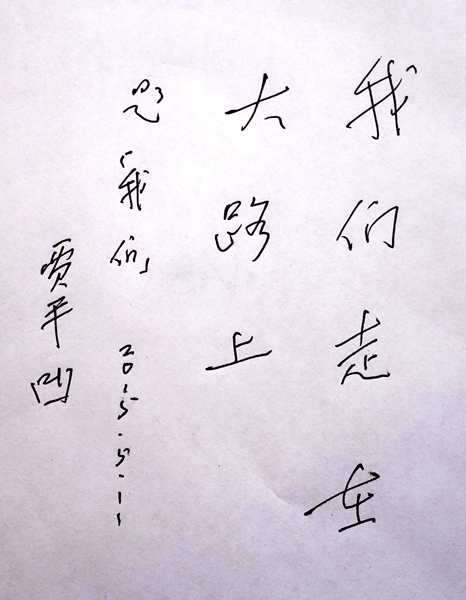 我们走在
大路上
题「我们」 2015.5.11
贾平凹